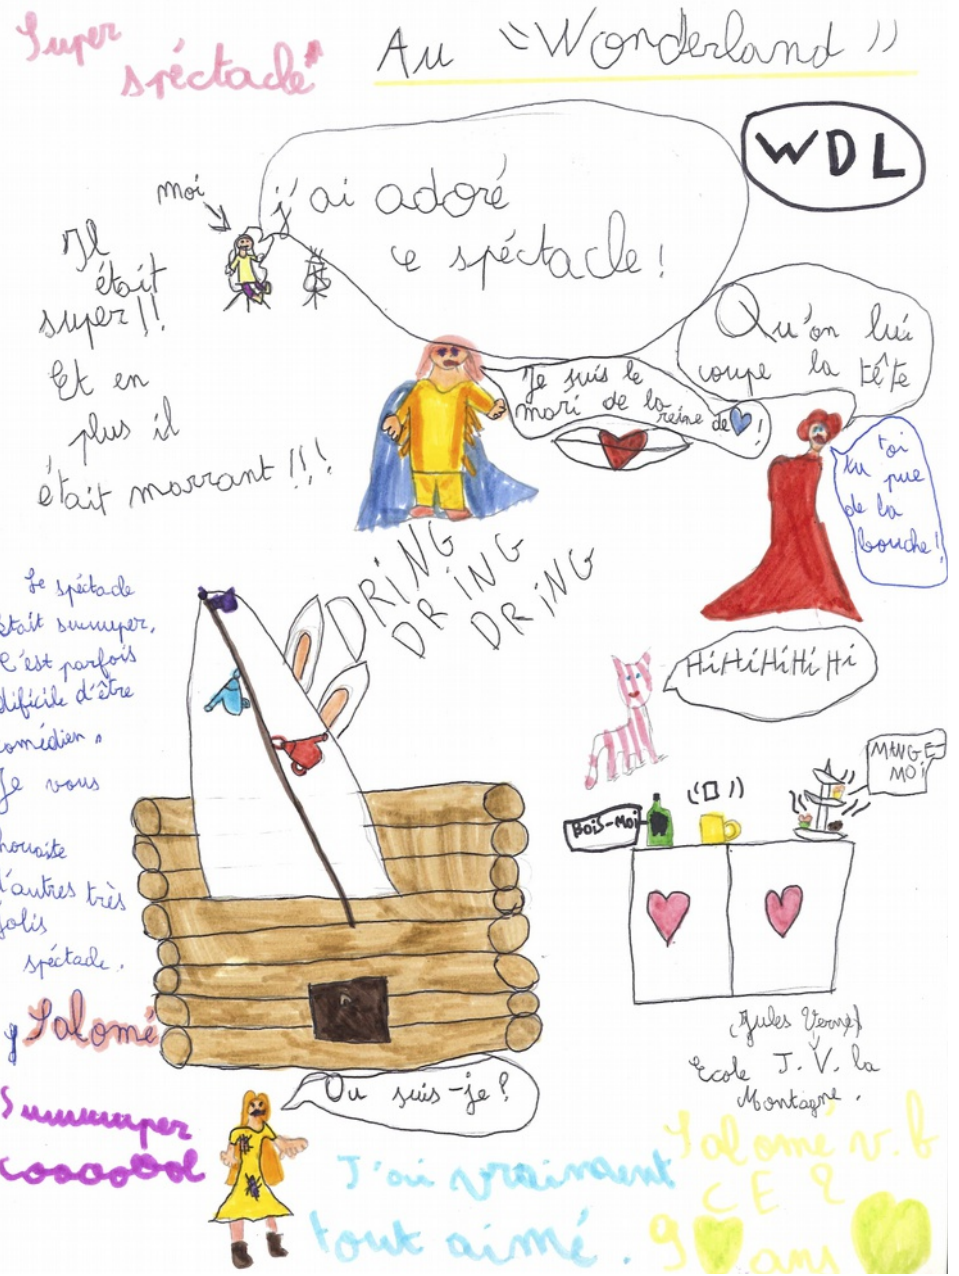 Super
spéctacle
Au "Wonderland"
WDL
moi
j'ai adoré
ce spéctacle!
Il
était
super!!
Et en
plus il
était marrant!!!
Qu'on lui
coupe la tête
Je suis le
mari de la reine de !
toi
tu pue
de la
bouche!
DRiNG
DRiNG
DRiNG
Le spéctacle
était suuuuper,
C'est parfois
dificile d'être
comédien,
Je vous
houaite
d'autres très
jolis
spéctacle.
Salomé
HiHiHiHiHi
MANGE-
MOI
BOIS-MOI
(Jules Verne)
Ecole J. V. la
Montagne.
Ou suis-je?
Suuuuuper
coooooool
J'ai vraiment
tout aimé.
Salomé v.b
CE2
9 ans